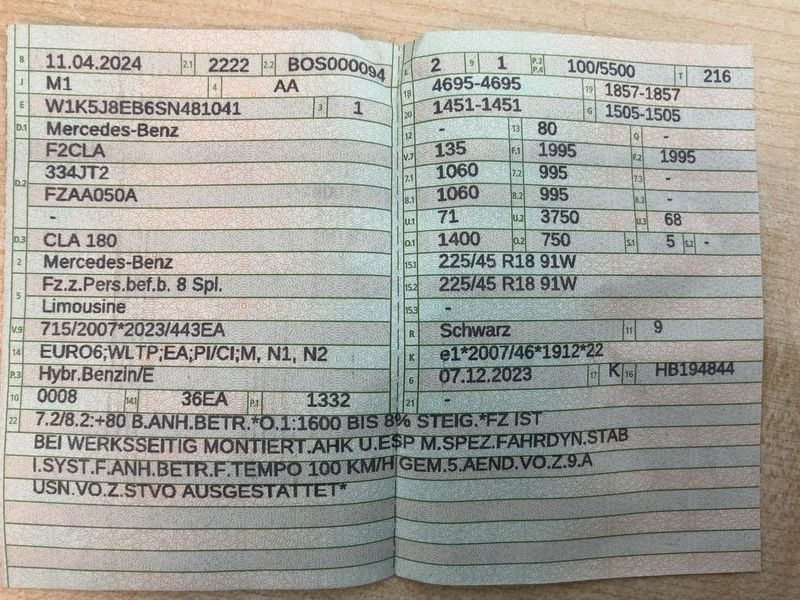 B 11.04.2024 2.1 2222 2.2 BOS000094
J M1 4 AA
E W1K5J8EB6SN481041 3 1
D.1 Mercedes-Benz
F2CLA
D.2 334JT2
FZAA050A
-
D.3 CLA 180
2 Mercedes-Benz
5 Fz.z.Pers.bef.b. 8 Spl.
Limousine
V.9 715/2007*2023/443EA
14 EURO6;WLTP;EA;PI/CI;M, N1, N2
P.3 Hybr.Benzin/E
10 0008 14.1 36EA P.1 1332
L 2 9 1 P.2 P.4 100/5500 T 216
18 4695-4695 19 1857-1857
20 1451-1451 G 1505-1505
12 - 13 80 Q -
V.7 135 F.1 1995 F.2 1995
7.1 1060 7.2 995 7.3 -
8.1 1060 8.2 995 8.3 -
U.1 71 U.2 3750 U.3 68
O.1 1400 O.2 750 S.1 5 S.2 -
15.1 225/45 R18 91W
15.2 225/45 R18 91W
15.3 -
R Schwarz 11 9
K e1*2007/46*1912*22
6 07.12.2023 17 K 16 HB194844
21 -
22 7.2/8.2:+80 B.ANH.BETR.*O.1:1600 BIS 8% STEIG.*FZ IST
BEI WERKSSEITIG MONTIERT.AHK U.ESP M.SPEZ.FAHRDYN.STAB
I.SYST.F.ANH.BETR.F.TEMPO 100 KM/H GEM.5.AEND.VO.Z.9.A
USN.VO.Z.STVO AUSGESTATTET*